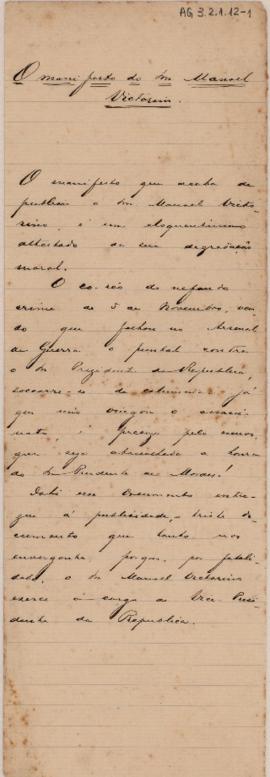 AG 3.2.1.12-1
O manifesto do Sr Manoel
Victorino.
O manifesto que acaba de
publicar o Sr. Manoel Victo-
rino, é um eloquentissimo
attestado da sua degradação
moral.
O co-réo do nefando
crime de 5 de Novembro, ven-
do que falhou no Arsenal
de Guerra o punhal contra
o Sr. Presidente da Republica,
soccorre-se da calumnia já
que não vingou o assassi-
nato, é preciso pelo menos,
que seja abocanhada a honra
do Sr. Prudente de Moraes!
Está esse documento entre-
gue á publicidade, triste do-
cumento que tanto nos
envergonha, porque, por fatali-
dade, o Sr. Manoel Victorino
exerce o cargo de Vice-Presi-
dente da Republica.